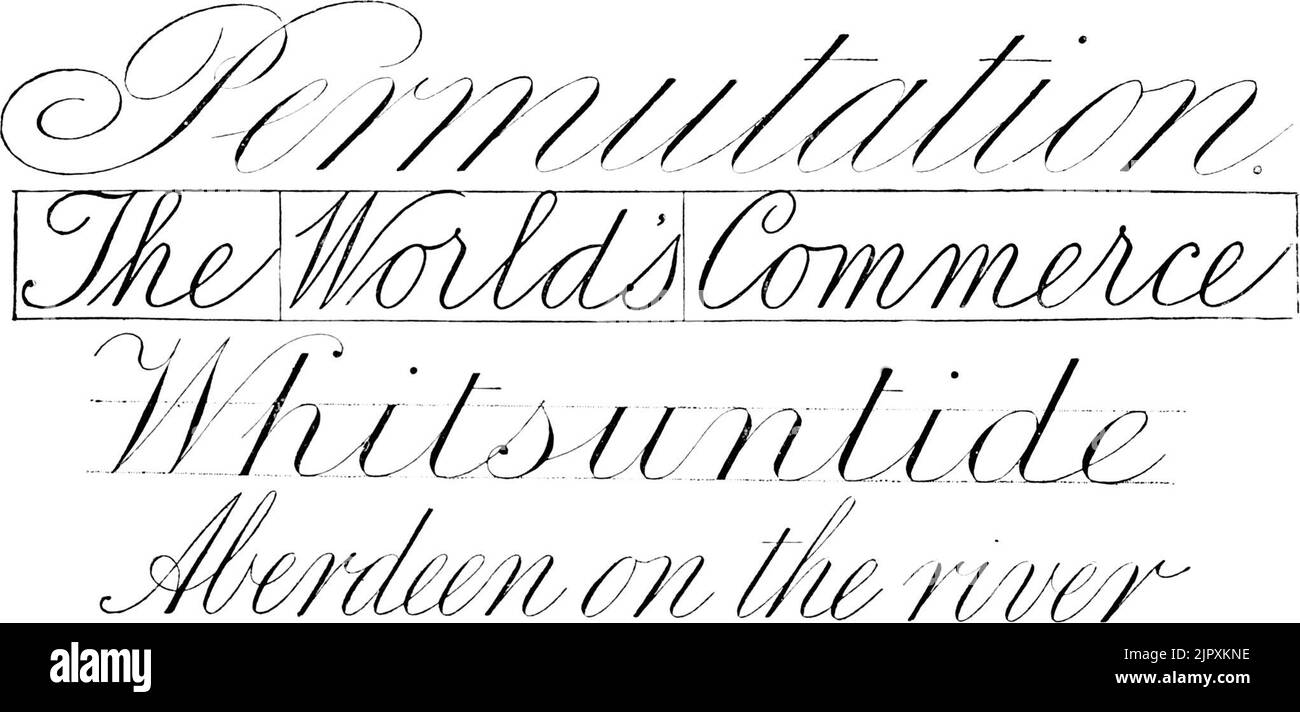 Permutation.
The World's Commerce
Whitsuntide
Aberdeen on the river
alamy
Image ID: 2JPXKNE
www.alamy.com